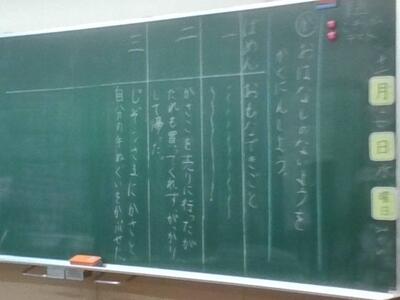 おはなしのないようを
かくにんしよう。
ばめん おもなできごと
一
二 かさこを売りに行ったが
だれも買ってくれず、がっかり
して帰った。
三 じぞうさまにかさと、
自分の手ぬぐいをかぶせた。
月
日
曜日